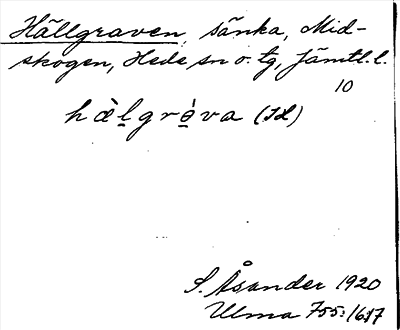 Hällgraven, sänka, Mid-
skogen, Hede sn o. tg, Jämtl. l.
10
hæ̀l̲grè̲va (Id)
S. Åsander 1920
Ulma 755:1617